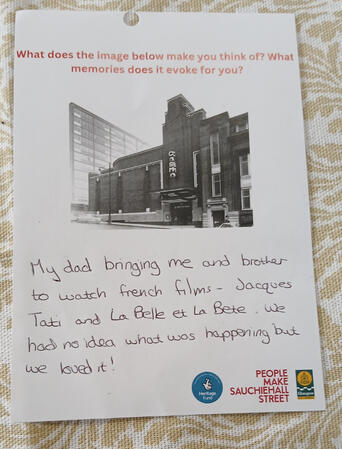 What does the image below make you think of? What
memories does it evoke for you?
My dad bringing me and brother
to watch french films - Jacques
Tati and La Belle et La Bete. We
had no idea what was happening but
we loved it!
Heritage
Fund
PEOPLE
MAKE
SAUCHIEHALL
STREET